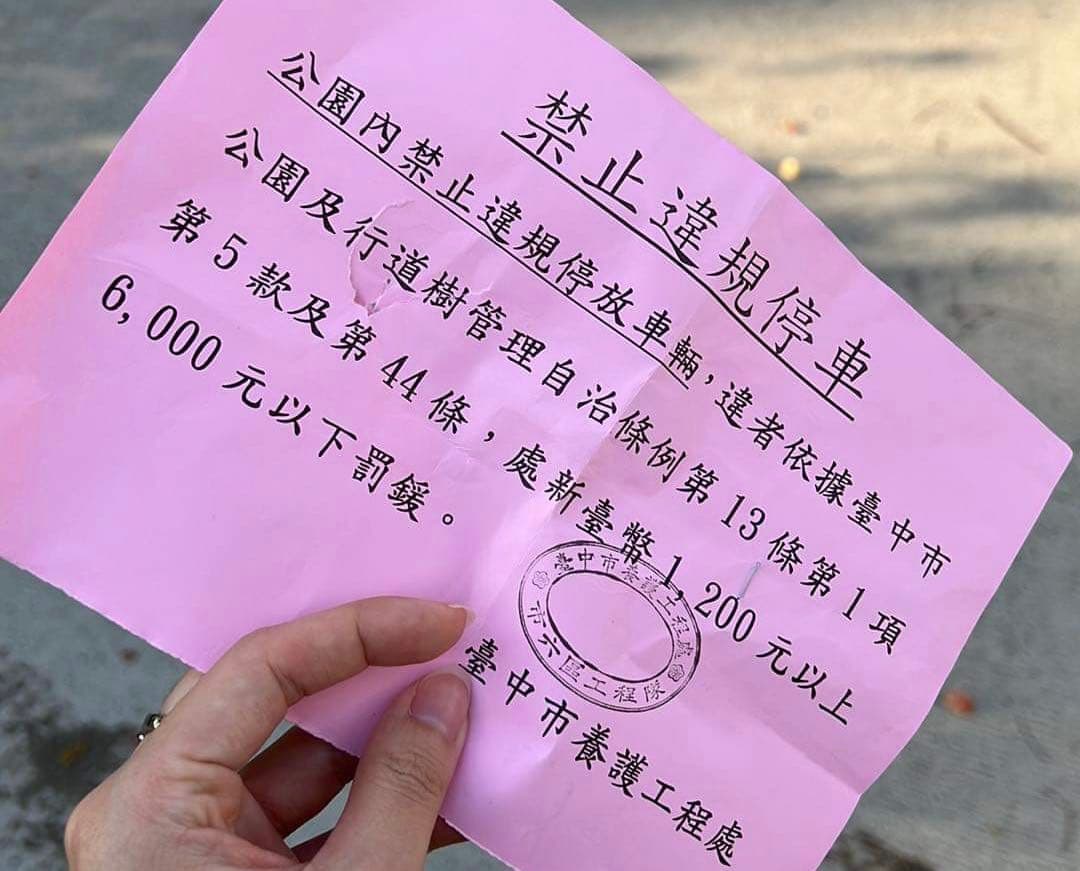 禁止違規停車
公園內禁止違規停放車輛，違者依據臺中市
公園及行道樹管理自治條例第 13 條第 1 項
第 5 款及第 44 條，處新臺幣 1,200 元以上
6,000 元以下罰鍰。
臺中市養護工程處
市六區工程隊
臺中市養護工程處